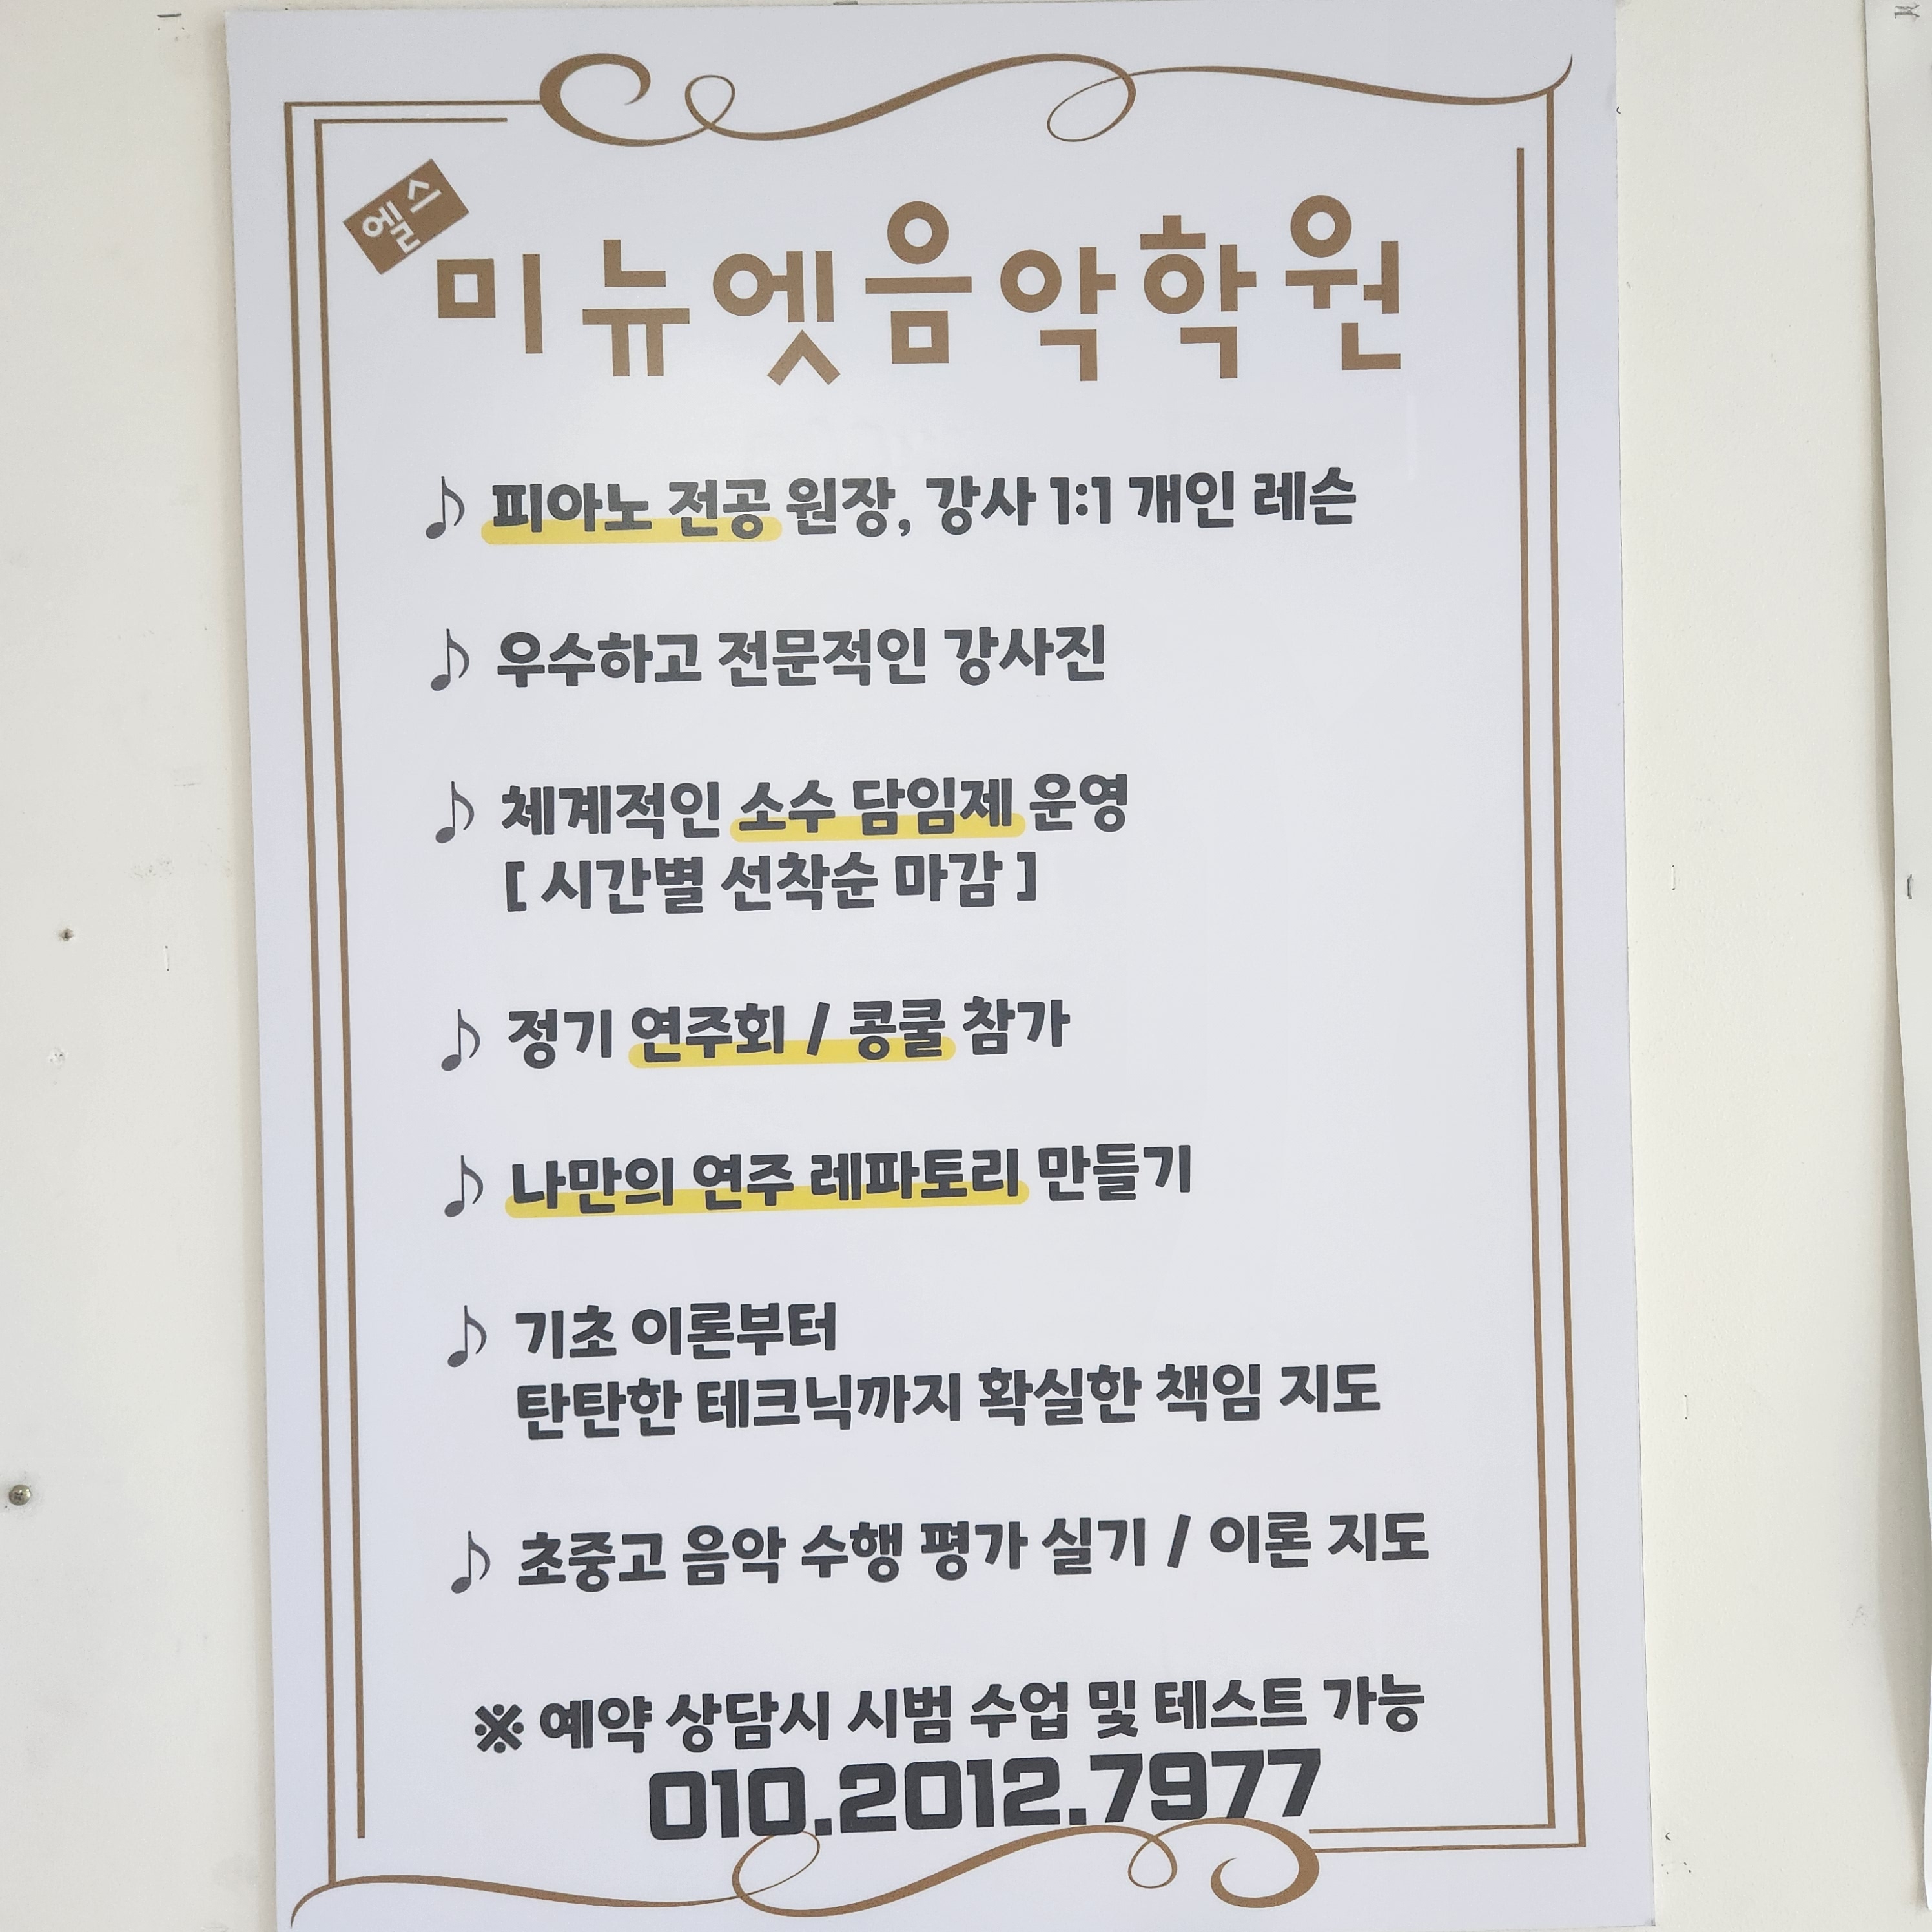 엘시
미뉴엣음악학원
♪ 피아노 전공 원장, 강사 1:1 개인 레슨
♪ 우수하고 전문적인 강사진
♪ 체계적인 소수 담임제 운영
[ 시간별 선착순 마감 ]
♪ 정기 연주회 / 콩쿨 참가
♪ 나만의 연주 레파토리 만들기
♪ 기초 이론부터
탄탄한 테크닉까지 확실한 책임 지도
♪ 초중고 음악 수행 평가 실기 / 이론 지도
※ 예약 상담시 시범 수업 및 테스트 가능
010.2012.7977